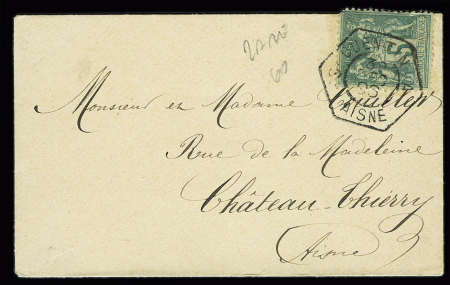 ST QUENTIN
AISNE
Monsieur et Madame
Rue de la Madeleine
Château-Thierry
Aisne